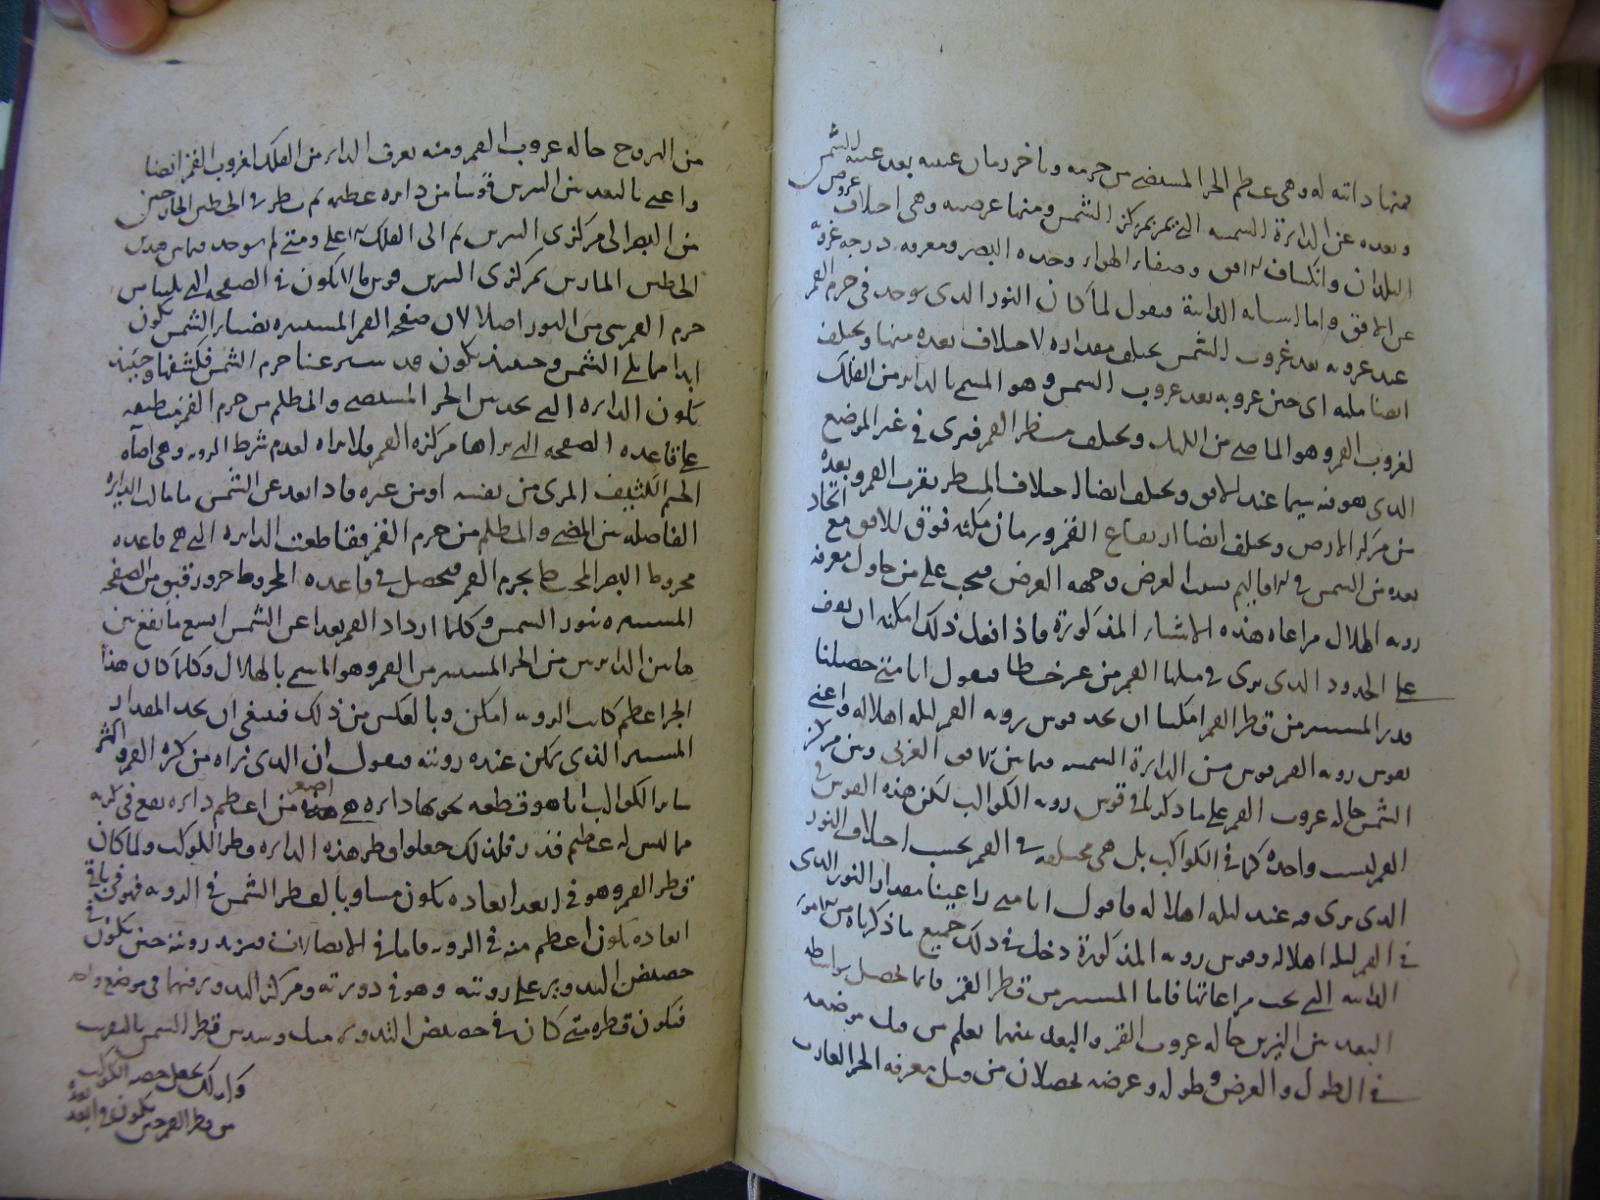 فمنها ذاتية له وهي عظم الجزء المستضئ من جرمه وتأخر زمان غيبته بعد غيبة الشمس
وبعده عن الدائرة السمتية التي تمر بمركز الشمس ومنها عرضية وهي اختلاف عروض
البلدان وانكشاف الافق وصفاء الهواء وحدة البصر ومعرفة درجة غروبه
عن الافق واما اسبابه الذاتية فنقول لما كان النور الذي يوجد في جرم القمر
عند غروبه بعد غروب الشمس يختلف مقداره لاختلاف بعده منها ويختلف
ايضا مكثه اي حين غروبه بعد غروب الشمس وهو المسمى بالدائر من الفلك
لغروب القمر وهو الماضي من الليل ويختلف منظر القمر فيرى في غير الموضع
الذي هو فيه سيما عند الافق ويختلف ايضا اختلاف المنظر بقرب القمر وبعده
من مركز الارض ويختلف ايضا ارتفاع القمر وزمان مكثه فوق الافق مع اتحاد
بعده من الشمس في الاقاليم بسبب العرض وجهة العرض فيجب على من حاول معرفة
رؤية الهلال مراعاة هذه الاشياء المذكورة فاذا فعل ذلك امكنه ان يقف
على الحدود الذي يرى في مثلها القمر من غير خطا فنقول انا متى حصلنا
قدر المستنير من قطر القمر امكننا ان نجد قوس رؤية القمر ليلة اهلاله واعني
بقوس رؤية القمر قوس من الدائرة السمتية فيما بين الافق الغربي وبين مركز
الشمس حالة غروب القمر على ما ذكر في قوس رؤية الكواكب لكن هذه القوس في
القمر ليست واحدة كما في الكواكب بل هي مختلفة في القمر بحسب اختلاف النور
الذي يرى فيه عند ليلة اهلاله فاقول انا متى راعينا مقدار النور الذي
في القمر ليلة اهلاله وقوس رؤية المذكورة دخل في ذلك جميع ما ذكرناه من الامور
الذاتية التي يجب مراعاتها فاما المستنير من قطر القمر فانما يحصل بواسطة
البعد بين النيرين حالة غروب القمر والبعد بينهما يعلم من قبل موضعه
في الطول والعرض وطوله وعرضه يحصلان من قبل معرفة الجزء الغارب
من البروج حالة غروب القمر ومنه يعرف الدائر من الفلك لغروب القمر ايضا
واعني بالبعد بين النيرين قوسا من دائرة عظيمة ثم ننظر في الخطين الخارجين
من البصر الى مركزي النيرين ثم الى الفلك الاعلى ومتى لم يوجد فيما بين هذين
الخطين المارين بمركزي النيرين قوس ما لا يكون في الصفحة التي تلينا من
جرم القمر شئ من النور اصلا لان صفحة القمر المستنيرة بضياء الشمس تكون
ابدا مما يلي الشمس وحينئذ يكون قد ستر عنا جرم الشمس فكسفها وحينئذ
تكون الدائرة التي تحد بين الجزء المستضئ والمظلم من جرم القمر منطبقة
على قاعدة الصفحة التي يراها مركزه القمر ولا نراه لعدم شرط الرؤية وهي اضاءة
الجسم الكثيف المرئ من نفسه او من غيره فاذا بعد عن الشمس ما مالت الدائرة
الفاصلة بين المضئ والمظلم من جرم القمر فقاطعت الدائرة التي هي قاعدة
مخروط البصر المحيط بجرم القمر فيحصل في قاعدة المخروط جزء رقيق من الصفحة
المستنيرة بنور الشمس وكلما ازداد القمر بعدا عن الشمس اتسع ما يقع بين
هاتين الدائرتين من الجزء المستنير من القمر وهو المسمى بالهلال وكلما كان هذا
الجزء اعظم كانت الرؤية امكن وبالعكس من ذلك فينبغي ان نجد المقدار
المستنير الذي يمكن عنده رؤيته فنقول ان الذي نراه من كرة القمر واكثر
سائر الكواكب انما هو قطعة يحوبها دائرة هي اصغر من اعظم دائرة تقع في كرته
مما ليس له عظيم قدر فلذلك جعلوا قطر هذه الدائرة قطر الكوكب ولما كان
قطر القمر وهو في ابعد ابعاده يكون مساويا لقطر الشمس في الرؤية فهو في باقي
ابعاده يكون اعظم منه في الرؤية فاما في الاتصالات فيزيد رؤيته حين يكون في
حضيض التدوير على رؤيته وهو في ذروته ومركز التدوير فيهما في موضع واحد
فيكون قطره متى كان في حضيض التدوير مثل وسدس قطر الشمس بالتقريب
وكذلك يجعل حصة الكوكب
من قطر القمر حين يكون في ابعد بعده